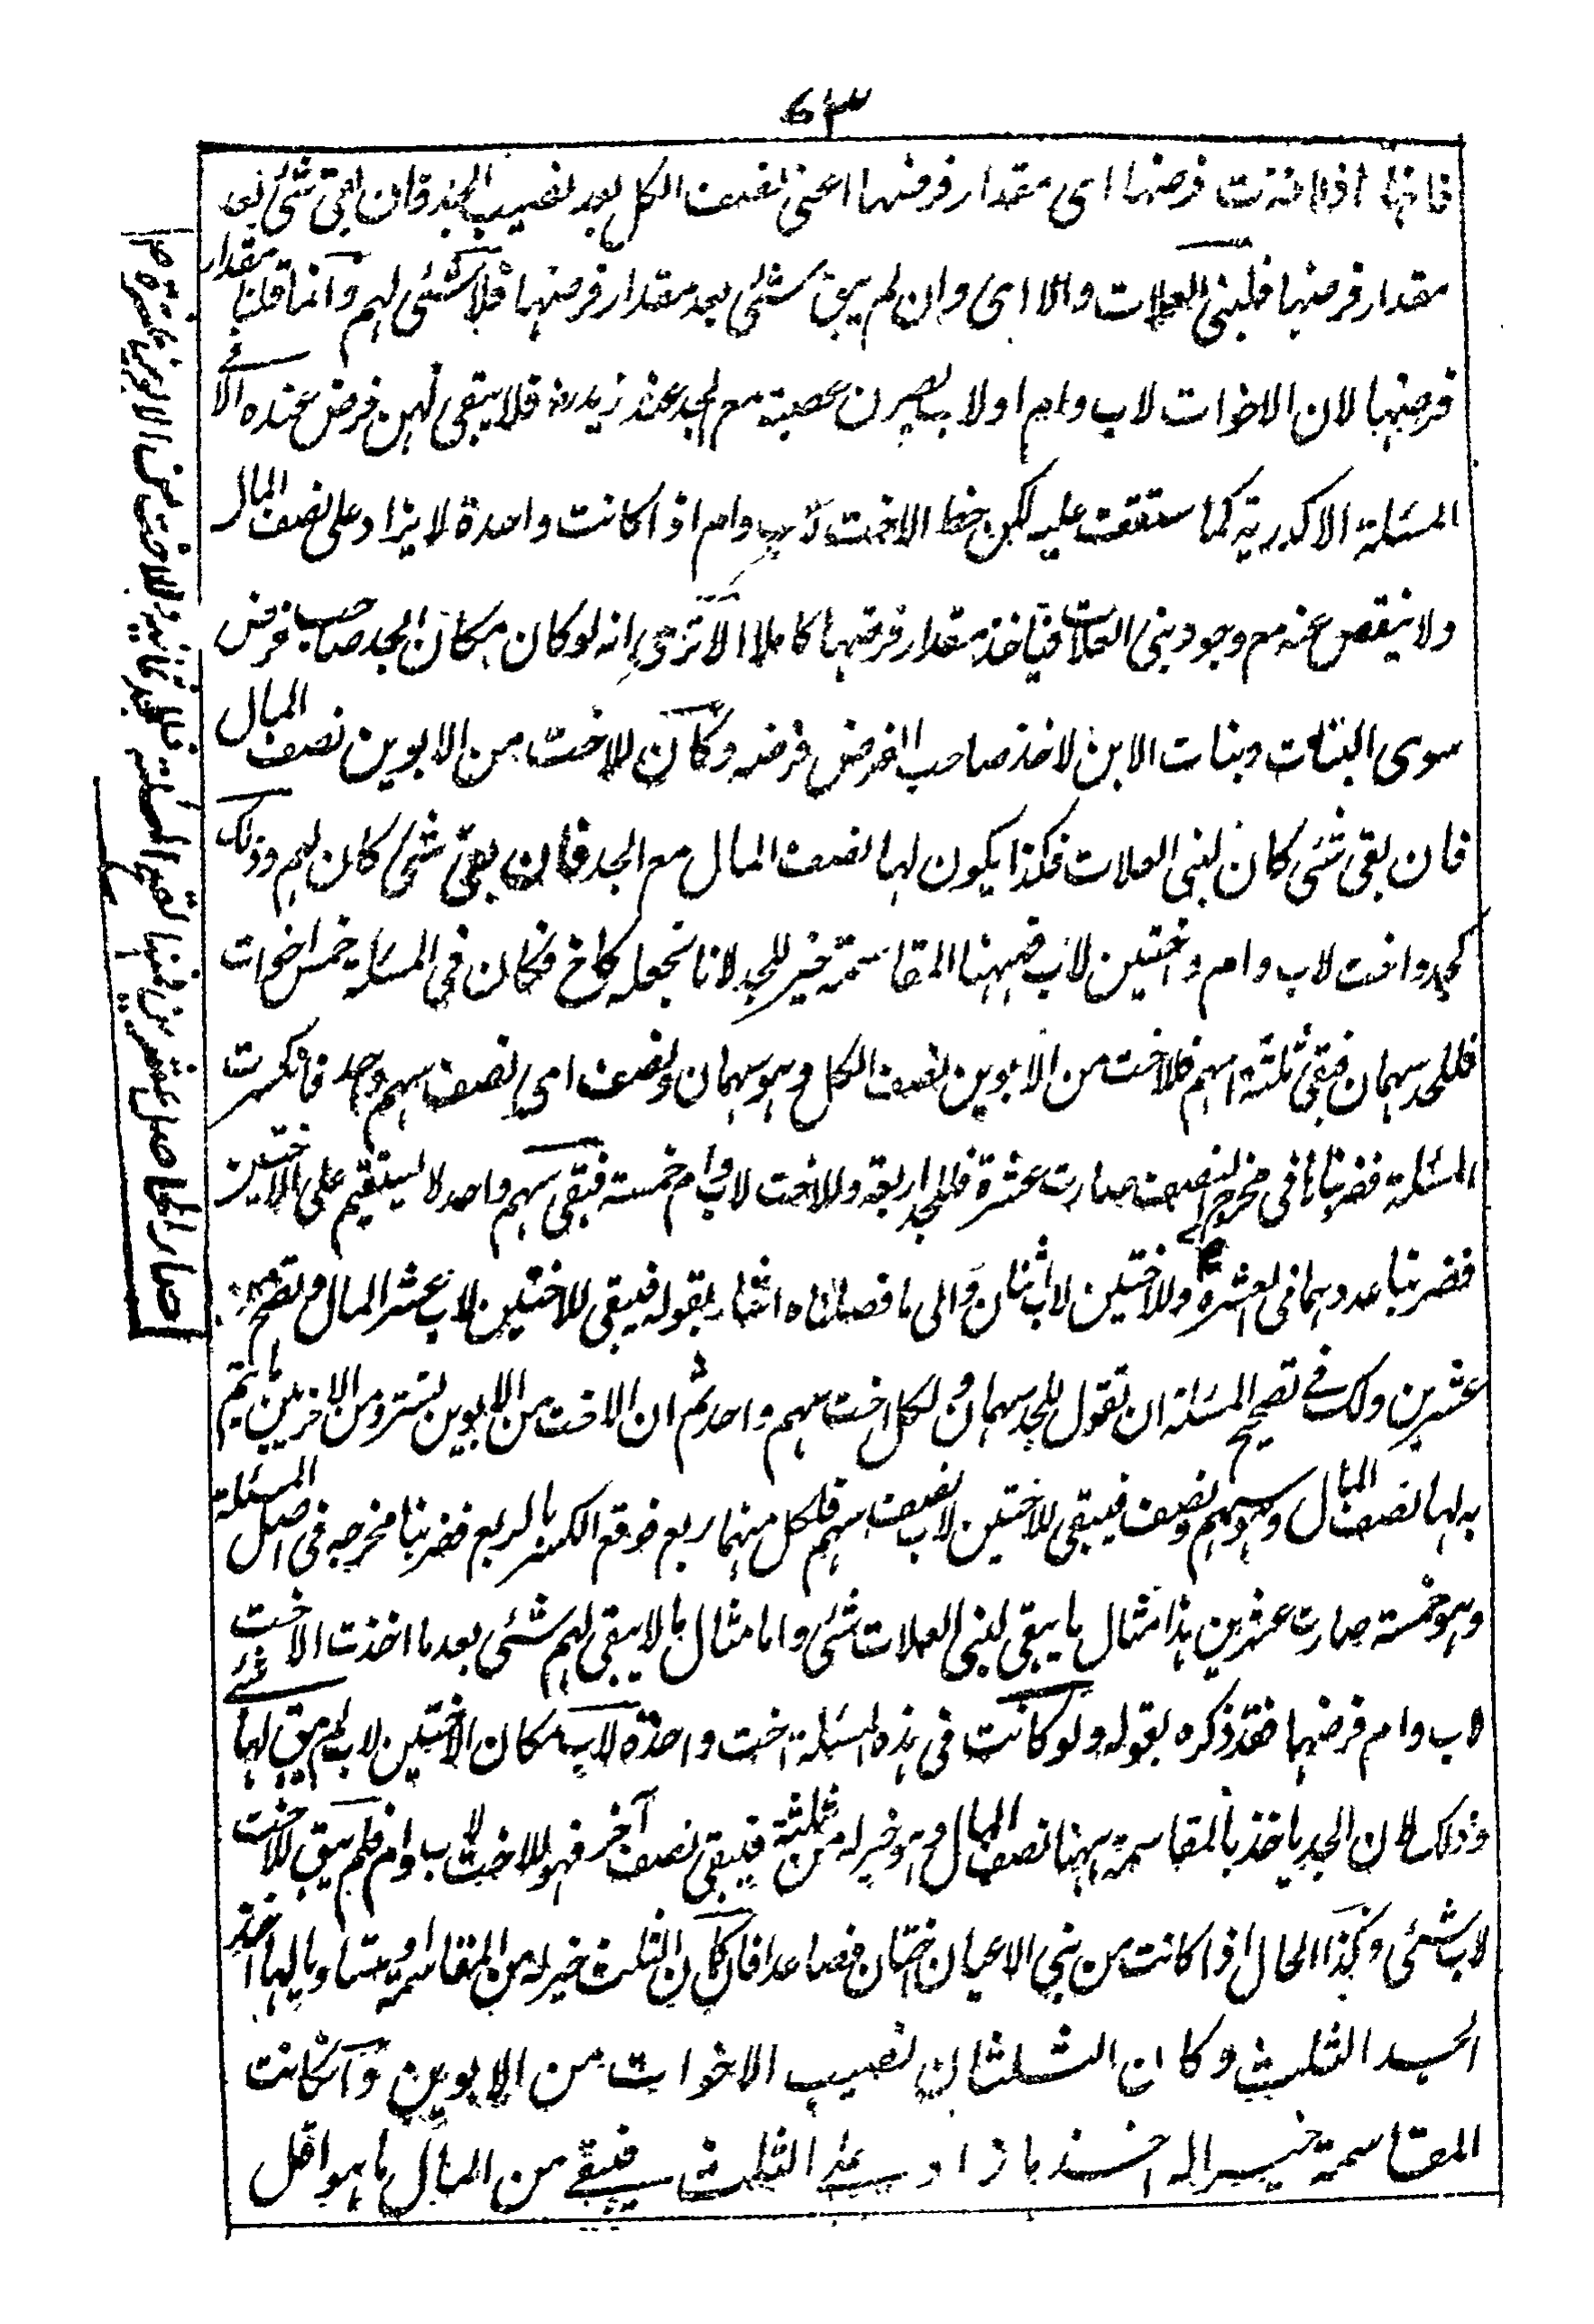 ٦٣
فانها اذا اخذت فرضها اى مقدار فرضها اعنى نصف الكل بعد نصيب الجد فان بقى شئ بعد
مقدار فرضها فلبنى العلات والا اى وان لم يبق شئى بعد مقدار فرضها فلا شئى لهم وانما قلنا مقدار
فرضها لان الاخوات لاب وام اولاب يصرن عصبة مع الجد عند زيد رض فلا يبقى لهن فرض عنده الا فى
المسئلة الاكدرية كما ستقف عليه لكن حظ الاخت لاب وام اذا كانت واحدة لا يزاد على نصف المال
ولا ينقص عنه مع وجود بنى العلات فياخذ مقدار فرضها كاملا الا ترى انه لو كان مكان الجد صاحب فرض
سوى البنات وبنات الابن لاخذ صاحب الفرض فرضه وكان للاخت من الابوين نصف المال
فان بقى شئى كان لبنى العلات فكذا يكون لها نصف المال مع الجد فان بقى شئ كان لهم وذلك
كجد واخت لاب وام واختين لاب فههنا المقاسمة خير للجد لانا نجعله كاخ فكان فى المسئلة خمس اخوات
فللجد سهمان فبقى ثلثة اسهم فللاخت من الابوين نصف الكل وهو سهمان ونصف اى نصف سهم واحد فانكسرت
المسئلة فضربناها فى مخرج النصف صارت عشرة فللجد اربعة وللاخت لاب وام خمسة فبقى سهم واحد لا يستقيم على الاختين
فضربنا عددهما فى العشرة وللاختين لاب اثنان والى ما فصلناه اشار بقوله فيبقى للاختين لاب عشر المال وتصح من
عشرين ولك فى تصحيح المسئلة ان تقول للجد سهمان ولكل اخت سهم واحد ثم ان الاخت من الابوين تسترد من الاخريين ما يتم
به لها نصف المال وهو سهم ونصف فيبقى للاختين لاب نصف سهم فلكل منهما ربع فوقع الكسر بالربع فضربنا مخرجه فى اصل المسئلة
وهو خمسة صارت عشرين هذا مثال ما يبقى لبنى العلات شئى واما مثال ما لا يبقى لهم شئى بعد ما اخذت الاخت
لاب وام فرضها فقد ذكره بقوله ولو كانت فى هذه المسئلة اخت واحدة لاب مكان الاختين لاب لم يبق لها شئے
وذلك لان الجد ياخذ بالمقاسمة ههنا نصف المال وهو خير له من ثلثه فيبقى نصف آخر فهو للاخت لاب وام فلم يبق للاخت
لاب شئى وهكذا الحال اذا كانت من بنى الاعيان اختان فصاعدا فان كان الثلث خير له من المقاسمة او متساويا لها اخذ
الجد الثلث وكان الثلثان نصيب الاخوات من الابوين وان كانت
المقاسمة خيرا له اخذ ما زاد على الثلث فيبقے من المال ما هو اقل